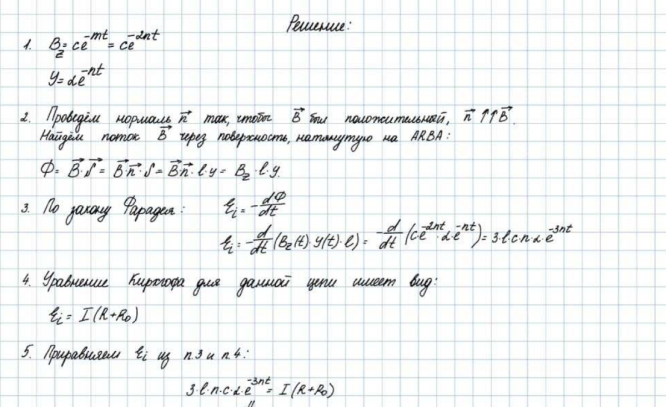 Решение:
1. B_z = ce^{-mt} = ce^{-2nt}
y = αe^{-nt}
2. Проведём нормаль n⃗ так, чтобы B⃗ был положительный, n⃗ ↑↑ B⃗.
Найдём поток B⃗ через поверхность, натянутую на ARBA:
Φ = B⃗·S⃗ = B⃗·n⃗·S = B⃗n⃗·l·y = B_z·l·y.
3. По закону Фарадея: ℰ_i = -dΦ/dt
ℰ_i = -d/dt (B_z(t)·y(t)·l) = -d/dt (ce^{-2nt}·αe^{-nt}) = 3·l·c·n·α·e^{-3nt}
4. Уравнение Кирхгофа для данной цепи имеет вид:
ℰ_i = I(R+R_0)
5. Приравняем ℰ_i из п.3 и п.4:
3·l·n·c·α·e^{-3nt} = I(R+R_0)